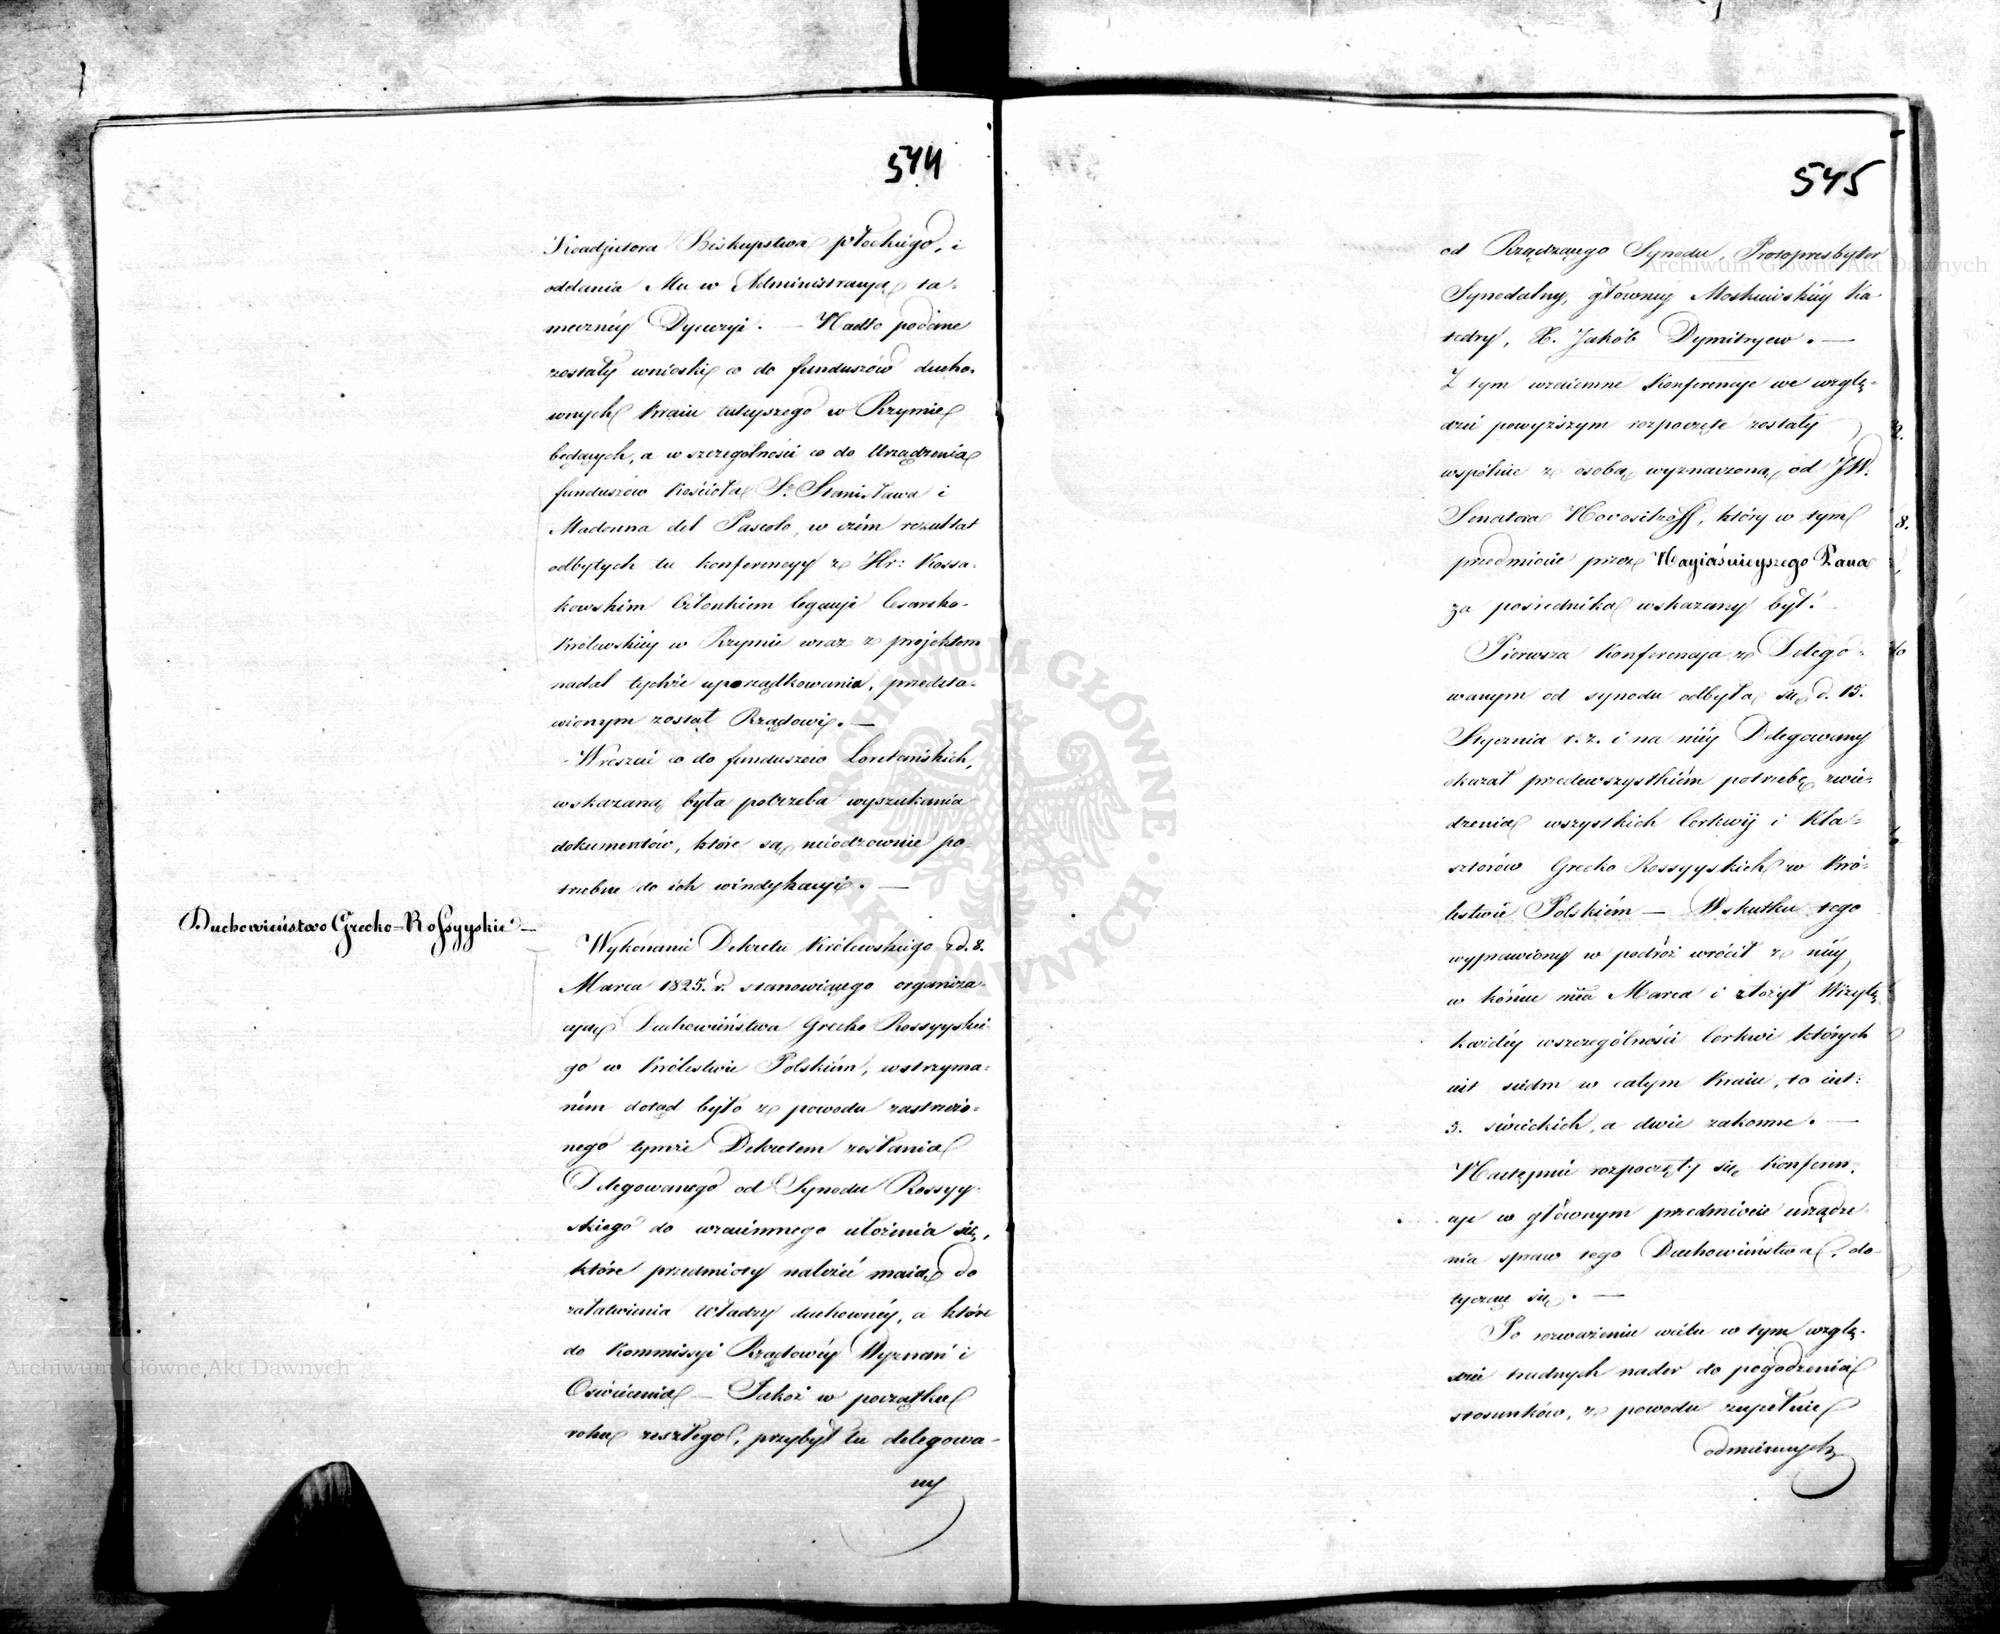 544
Koadjutora Biskupstwa płockiego, i
oddania Mu w Administracyą ta-
meczney Dyecezyi. — Nadto podane
zostały wnioski co do funduszów ducho-
wnych kraiu tuteyszego w Rzymie
będących, a w szczególności co do Urządzenia
funduszów kościoła S. Stanisława i
Madonna del Pascolo, w czém rezultat
odbytych tu konferencyy z Hr: Kossa-
kowskim Członkiem legacyi Cesarsko-
królewskiey w Rzymie wraz z projektem
nadal tychże uporządkowania, przedsta-
wionym został Rządowi. —
Wreszcie co do funduszów Loretańskich,
wskazaną była potrzeba wyszukania
dokumentów, które są nieodzownie po-
trzebne do ich windykacyi. —
Duchowieństwo Grecko-Rossyyskie —
Wykonanie Dekretu Królewskiego z d. 8.
Marca 1825. r. stanowiącego organiza-
cyią Duchowieństwa Grecko Rossyyskie-
go w Królestwie Polskiém, wstrzyma-
ném dotąd było z powodu zastrzeżo-
nego tymże Dekretem zesłania
Delegowanego od Synodu Rossyy-
skiego do wzaiemnego ułożenia się,
które przedmioty należeć maią do
załatwienia Władzy duchownéy, a które
do Kommissyi Rządowéy Wyznań i
Oświécenia — Jakoż w początku
roku zeszłego, przybył tu delegowa-
ny
545
od Rządzącego Synodu, Protopresbyter
Synodalny, głównéy Moskiewskiéy Ka
tedry, X. Jakób Dymitryew. —
Z tym wzaiemne Konferencje we wzglę-
dzie powyższym rozpoczęte zostały
wspólnie z osobą wyznaczoną od JW.
Senatora Novositzoff, który w tym
przedmiocie przez Nayiaśnieyszego Pana
za pośrednika wskazany był. —
Pierwsza Konferencja z Delego-
wanym od synodu odbyła się d. 15.
Stycznia r. z. i na niéy Delegowany
okazał przedewszystkiém potrzebę zwie-
dzenia wszystkich Cerkwiy i Kla-
sztorów Grecko Rossyyskich w Kró-
lestwie Polskiém — Wskutku tego
wyprawiony w podróż wrócił z niéy
w końcu mca Marca i złożył Wizytę
każdéy wszczególności Cerkwi których
iest siedm w całym Kraiu, to iest:
5. świeckich, a dwie zakonne. —
Następnie rozpoczęły się Konferen-
cye w głównym przedmiocie urządze-
nia spraw tego Duchowieństwa, do-
tyczące się. —
Po rozważeniu wielu w tym wzglę-
dzie trudnych nader do pogodzenia
stosunków, z powodu zupełnie
odmiennych